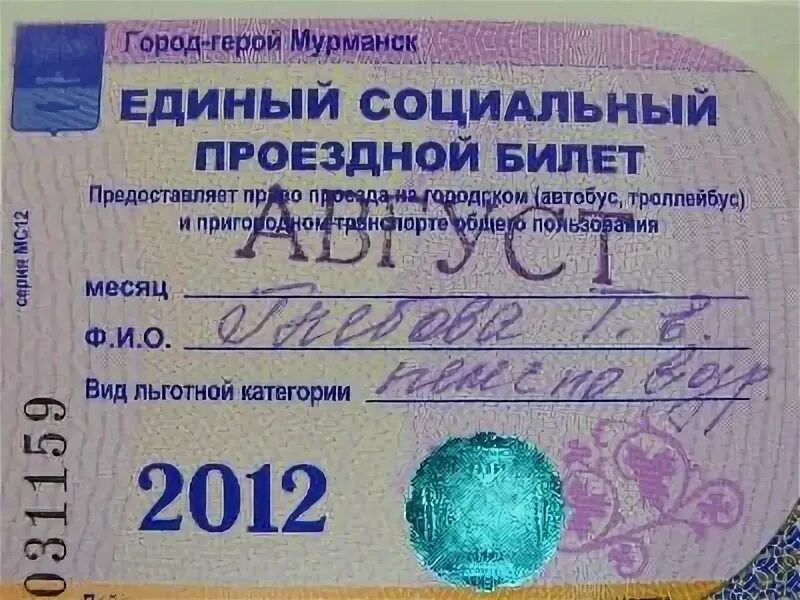 Город-герой Мурманск
ЕДИНЫЙ СОЦИАЛЬНЫЙ
ПРОЕЗДНОЙ БИЛЕТ
Предоставляет право проезда на городском (автобус, троллейбус)
и пригородном транспорте общего пользования
АВГУСТ
месяц
Ф.И.О. Глебова Т. В.
Вид льготной категории пенс по
2012
серия МС12
031159